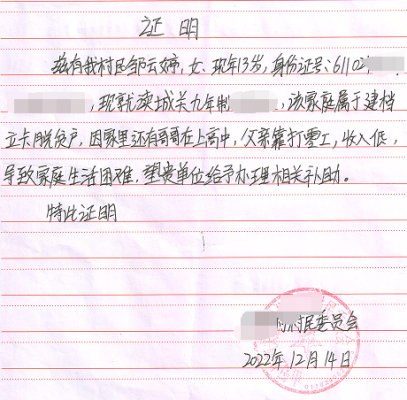 证明
兹有我村民邹云婷，女，现年13岁，身份证号：61102
，现就读城关九年制，该家庭属于建档
立卡脱贫户，因家里还有哥哥在上高中，父亲靠打零工，收入低，
导致家庭生活困难，望贵单位给予办理相关补助。
特此证明
村居委员会
2022年12月14日